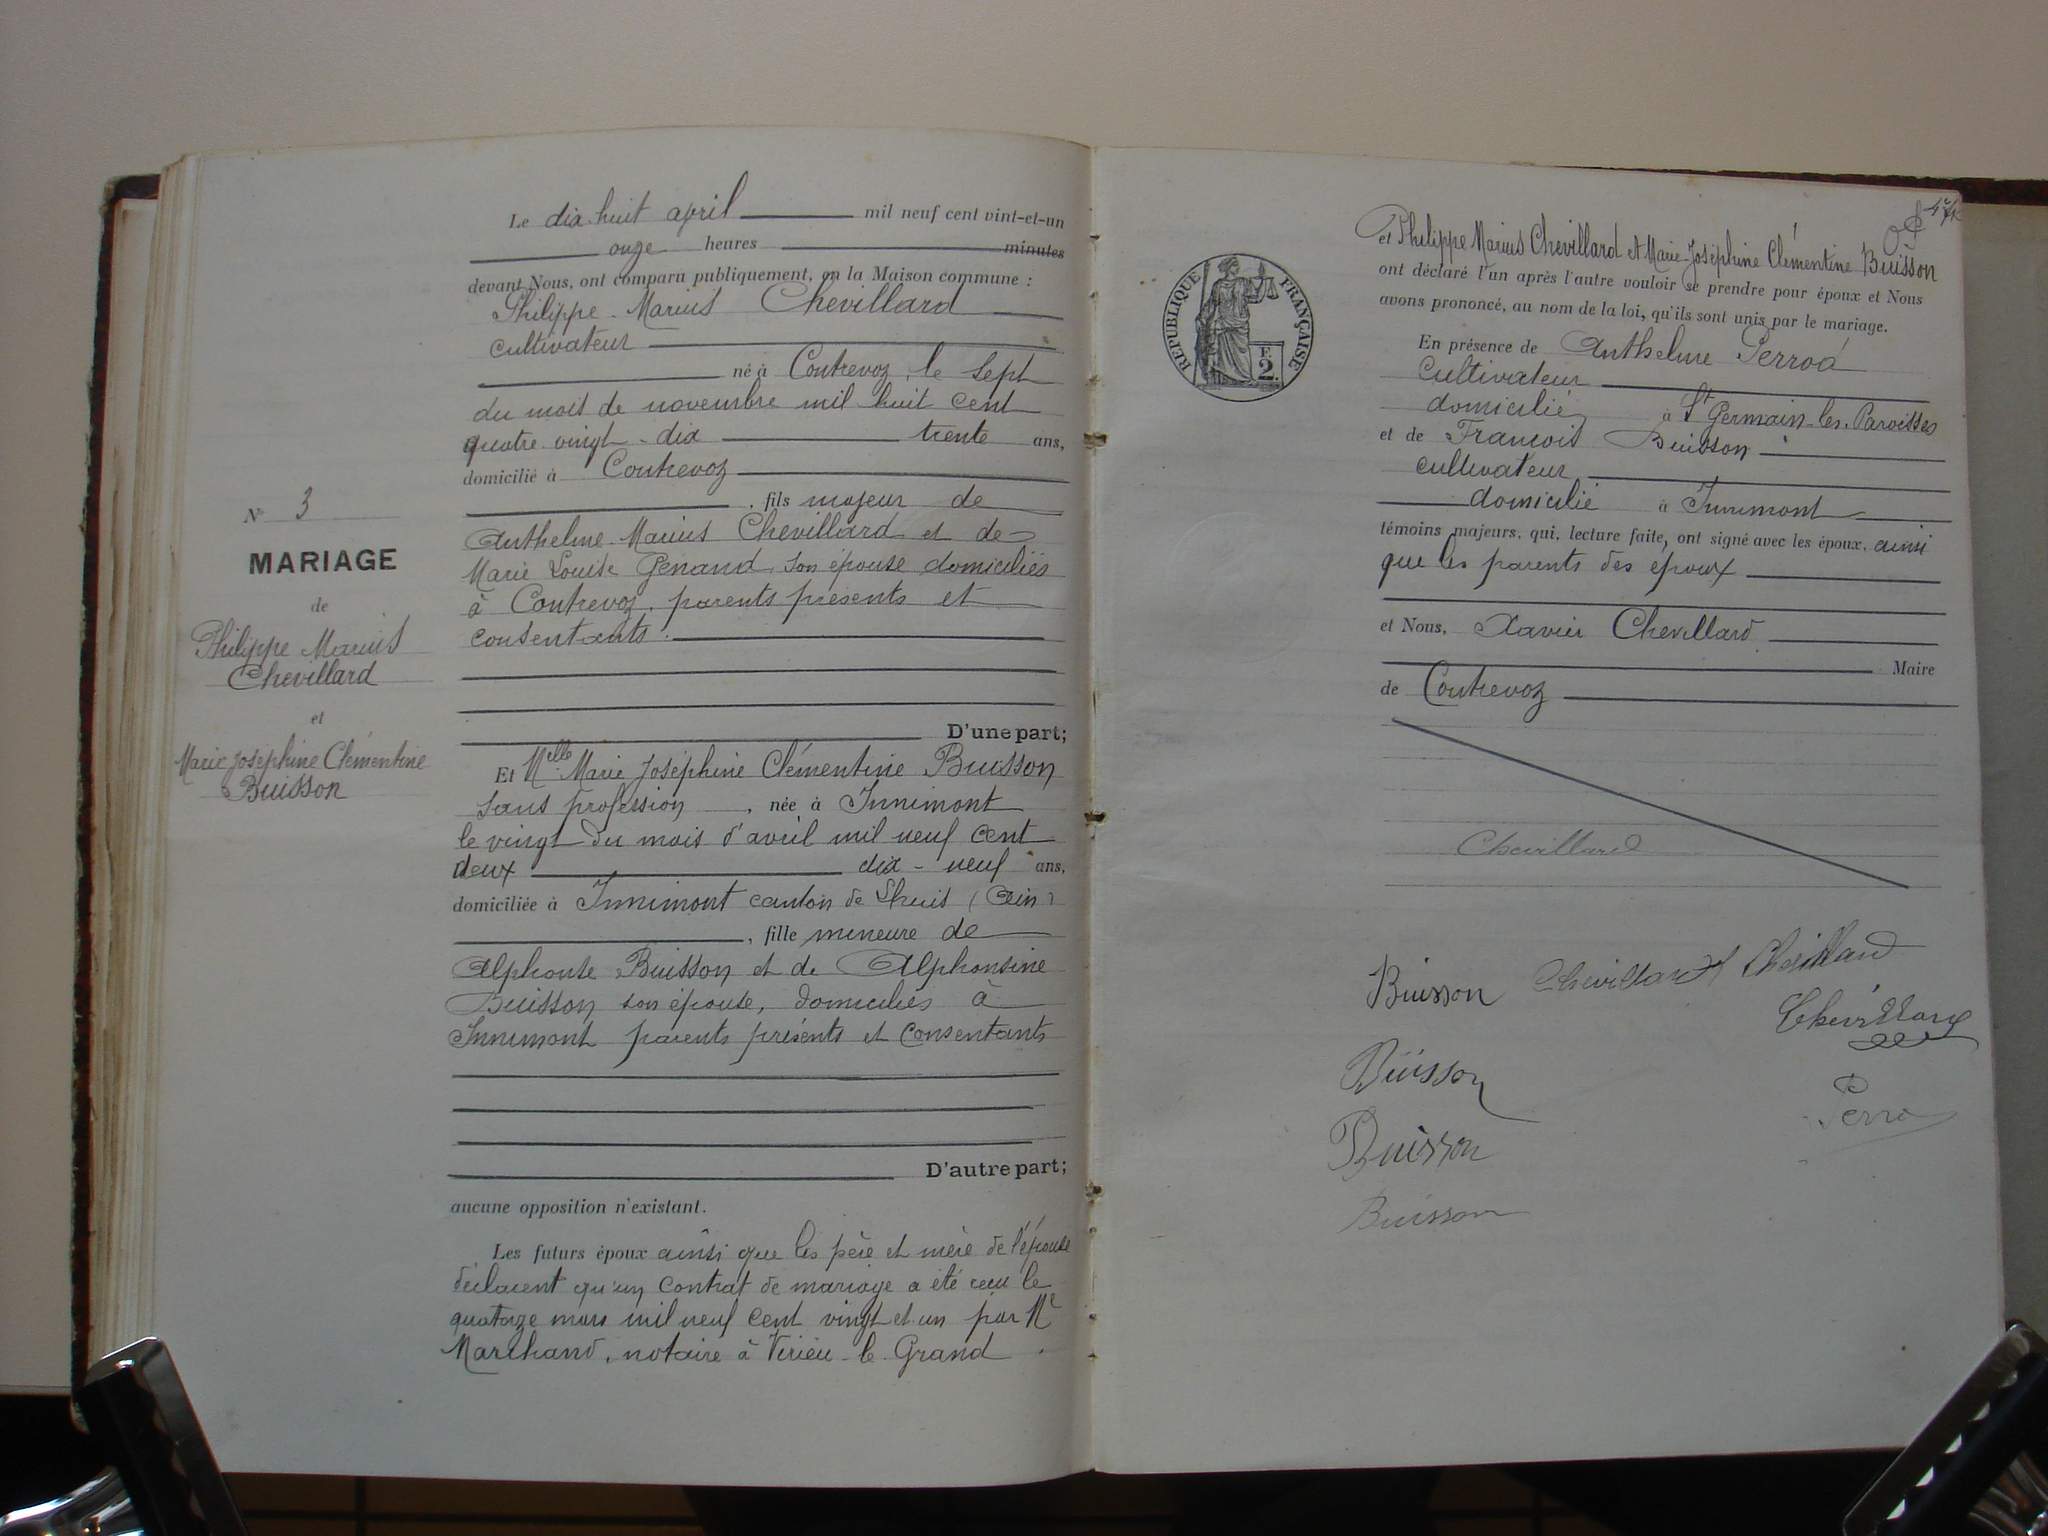 Le dix huit april mil neuf cent vint-et-un
onze heures minutes
devant Nous, ont comparu publiquement, en la Maison commune :
Philippe Marius Chevillard
cultivateur
né à Contrevoz, le sept
du mois de novembre mil huit cent
quatre vingt-dix trente ans,
domicilié à Contrevoz
, fils majeur de
Anthelme Marius Chevillard et de
Marie Louise Genand, son épouse domiciliés
à Contrevoz, parents présents et
consentants.
D'une part;
Et Melle Marie Joséphine Clémentine Buisson
sans profession, née à Innimont
le vingt du mois d'avril mil neuf cent
deux dix-neuf ans,
domiciliée à Innimont canton de Lhuis (Ain)
, fille mineure de
Alphonse Buisson et de Alphonsine
Buisson son épouse, domiciliés à
Innimont parents présents et consentants
D'autre part;
aucune opposition n'existant.
Les futurs époux ainsi que les père et mère de l'épouse
déclarent qu'un contrat de mariage a été recu le
quatorze mars mil neuf cent vingt et un par Me
Marchand, notaire à Virieu-le-Grand
N° 3
MARIAGE
de
Philippe Marius
Chevillard
et
Marie Joséphine Clémentine
Buisson
RÉPUBLIQUE FRANÇAISE
F.
2.
et Philippe Marius Chevillard et Marie Joséphine Clémentine Buisson
ont déclaré l'un après l'autre vouloir se prendre pour époux et Nous
avons prononcé, au nom de la loi, qu'ils sont unis par le mariage.
En présence de Anthelme
cultivateur
domicilié à St Germain-les-Paroisses
et de Francois Buisson
cultivateur
domicilié à Innimont
témoins majeurs, qui, lecture faite, ont signé avec les époux, ainsi
que les parents des époux
et Nous, Xavier Chevillard
Maire
de Contrevoz
Chevillard
Buisson Chevillard Chevillard
Chevillard
Buisson
Perro
Buisson
Buisson